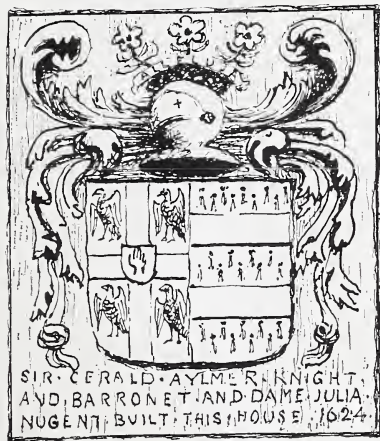 SIR·GERALD·AYLMER·KNIGHT·
AND·BARRONET·AND·DAME·JULIA·
NUGENT·BUILT·THIS·HOUSE·1624·